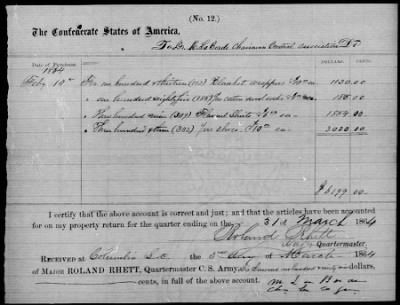 (No. 12.)
The Confederate States of America,
To Dr. Chairman Central association Dr
Date of Purchase
1864
Feby 19th For one hundred & thirteen (113) Blanket wrappers $10 ea 1130.00
" one hundred eighty five (185) prs cotton socks 185.00
" Three hundred nine (309) Flannel Shirts $6 ea 1854.00
" Three hundred & three (303) prs shoes $10 ea 3030.00
$6199.00
I certify that the above account is correct and just; and that the articles have been accounted
for on my property return for the quarter ending on the 31st March 1864
Roland Rhett
Major Quartermaster.
Received at Columbia S.C. the 5th day of March 1864
of Major ROLAND RHETT, Quartermaster C. S. Army, Six thousand one hundred ninety nine dollars,
cents, in full of the above account.